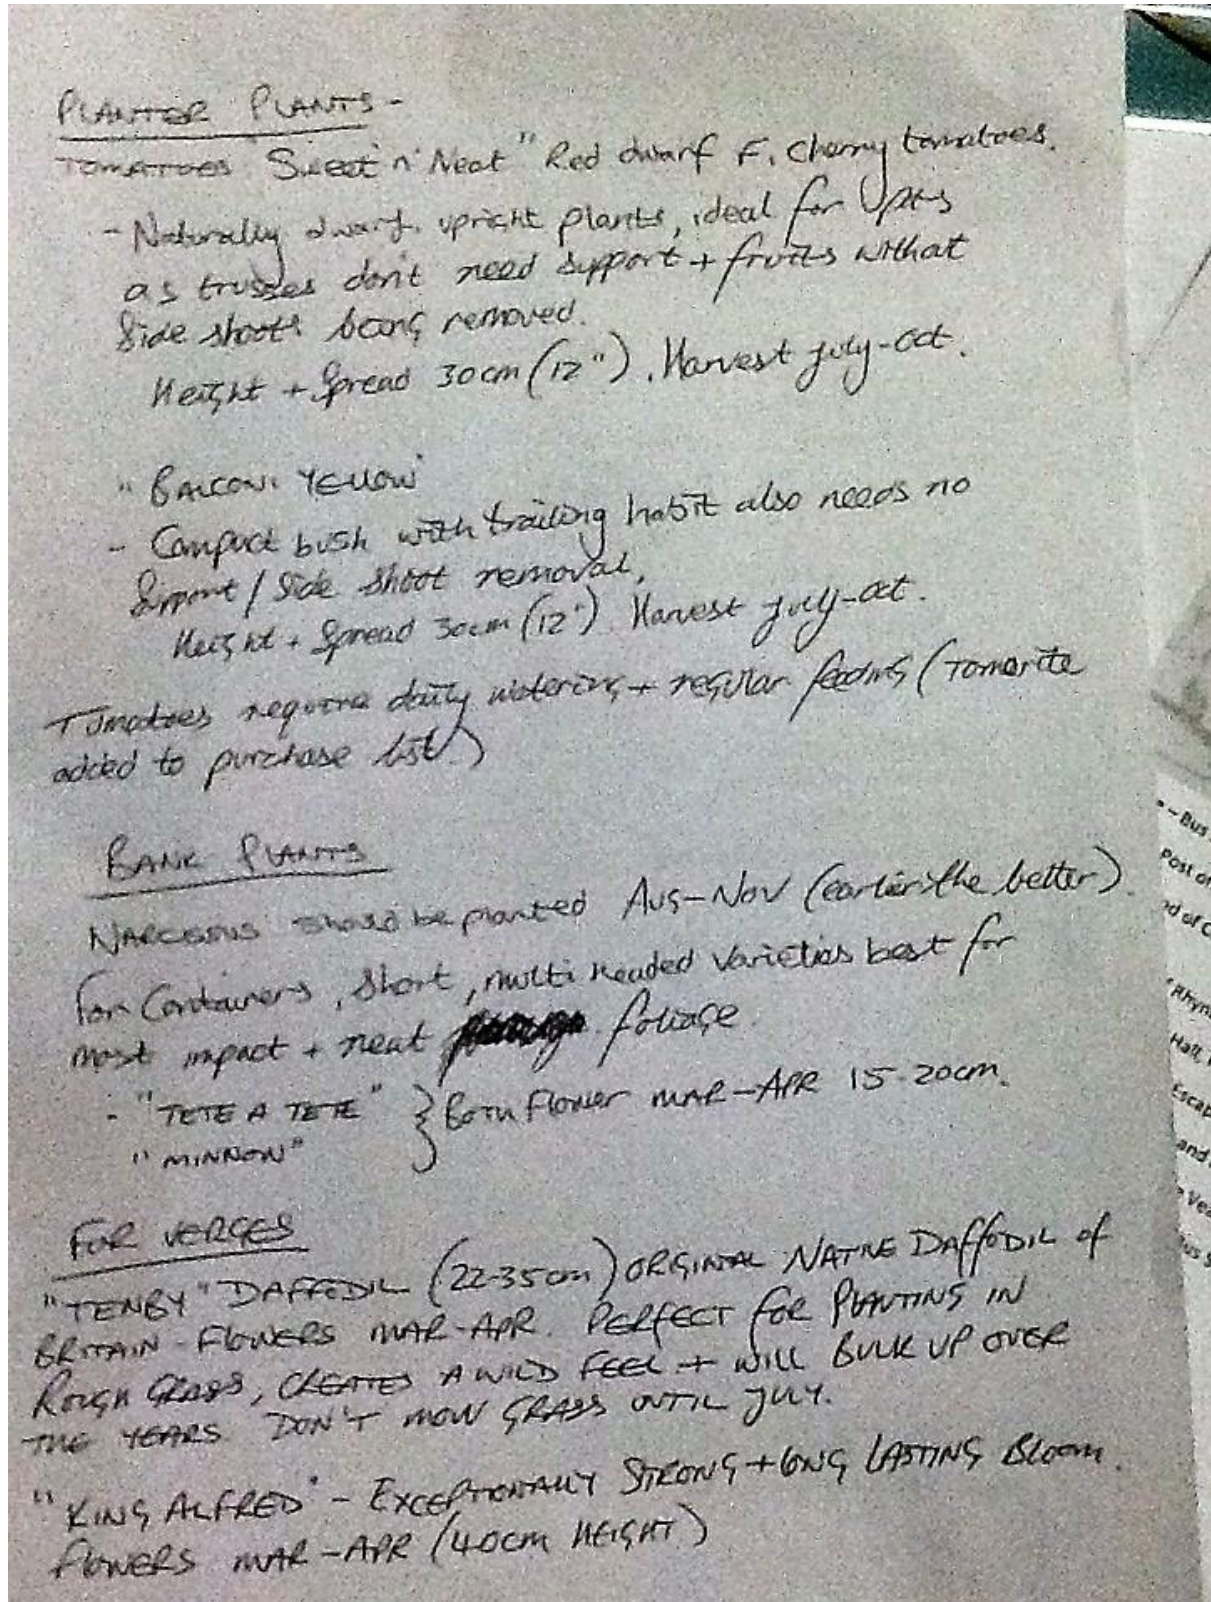 PLANTER PLANTS -
TOMATOES "Sweet 'n' Neat" Red dwarf F1 cherry tomatoes.
- Naturally dwarf, upright plants, ideal for
as trusses don't need support + fruits without
Side shoots being removed.
Height + Spread 30cm (12"). Harvest July-Oct.
"BALCONI YELLOW"
- Compact bush with trailing habit also needs no
Support / Side shoot removal.
Height + Spread 30cm (12"). Harvest July-Oct.
Tomatoes require daily watering + regular feeding (Tomorite
added to purchase list)
BANK PLANTS
NARCISSUS should be planted AUG-NOV (earlier the better).
For Containers, short, multi headed varieties best for
most impact + neat foliage.
- "TETE A TETE" } Both flower MAR-APR 15-20cm.
"MINNOW"
FOR VERGES
"TENBY" DAFFODIL (22-35cm) ORIGINAL NATIVE DAFFODIL of
BRITAIN - FLOWERS MAR-APR. PERFECT for PLANTING IN
ROUGH GRASS, CREATES A WILD FEEL + WILL BULK UP OVER
THE YEARS. DON'T MOW GRASS UNTIL JULY.
"KING ALFRED" - EXCEPTIONALLY STRONG + LONG LASTING BLOOM.
FLOWERS MAR-APR (40cm HEIGHT)
- Bus
Post
Hall,
and